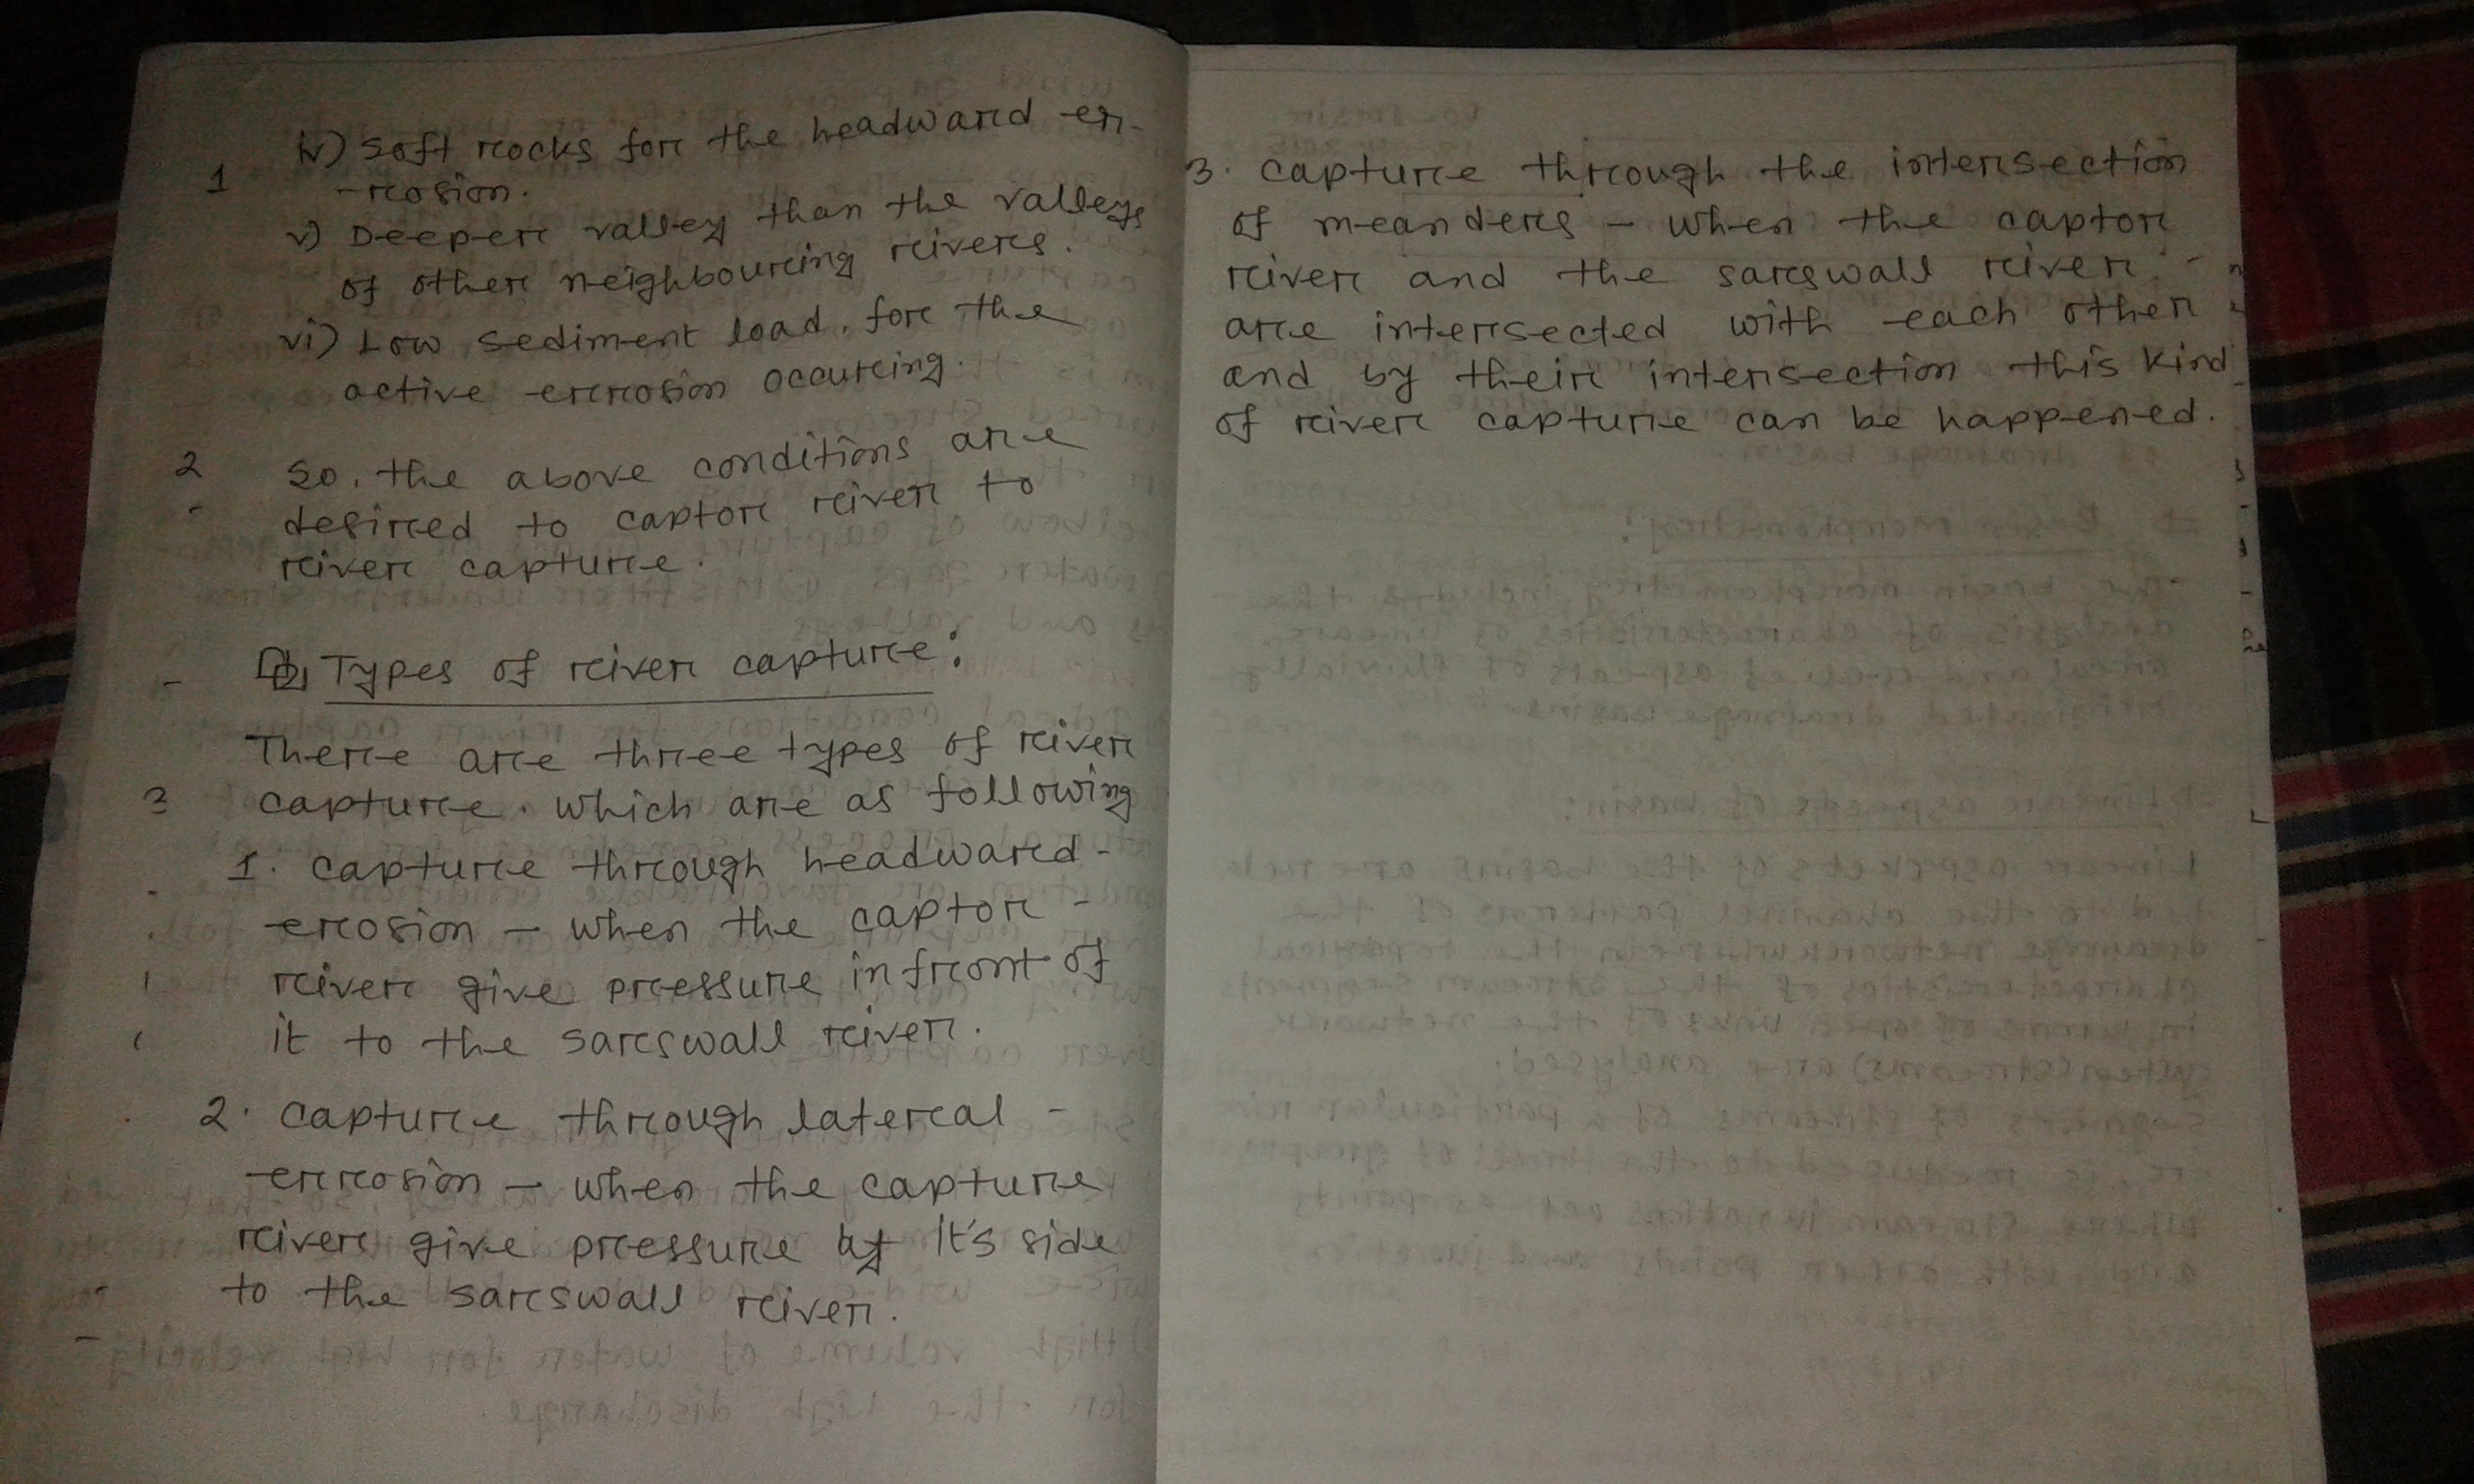 iv) Soft rocks for the headward er-
-rosion.
v) Deeper valley than the valleys
of other neighbouring rivers.
vi) Low sediment load, for the
active errosion occuring.
So, the above conditions are
desired to captor river to
river capture.
Types of river capture:
There are three types of river
capture. which are as following
1. capture through headward -
erosion - when the captor -
river give pressure in front of
it to the sarswall river.
2. capture through lateral -
errosion - when the capture
river give pressure by it's side
to the sarswall river.
3. capture through the intersection
of meanders - when the captor
river and the sarswall river -
are intersected with each other
and by their intersection this kind
of river capture can be happened.